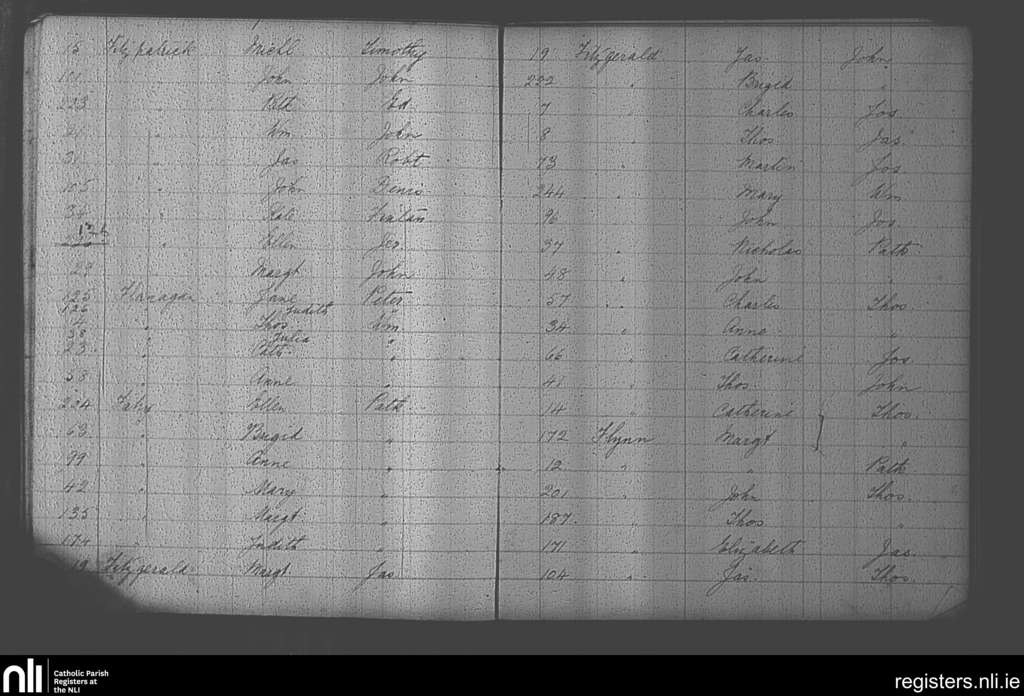 15 Fitzpatrick Michl Timothy
101 " John John
223 " Patk Ed
" Wm John
31 " Jas Robt
105 " John Denis
34 " Kate Fintan
126
" Ellen Jer
29 " Margt John
125 Flanagan Jane Peter
126 " Judith
4 " Thos Wm
38 " Julia "
23 " Cath. "
38 " Anne "
204 Fahy Ellen Patk
63 " Brigid "
99 " Anne "
42 " Mary "
135 " Margt "
174 " Judith "
19 Fitzgerald Margt Jas
19 Fitzgerald Jas. John
222 " Brigid "
7 " Charles Jos
8 " Thos Jas
73 " Martin Jos
244 " Mary Wm
96 " John Jos.
37 " Nicholas Patk
48 " John "
57 " Charles Thos
34 " Anne "
66 " Catherine Jos
41 " Thos. John
14 " Catherine Thos.
172 Flynn Margt "
12 " " Patk
201 " John Thos.
187. " Thos "
171 " Elizabeth Jas.
104 " Jas. Thos.
nli Catholic Parish
Registers at
the NLI
registers.nli.ie